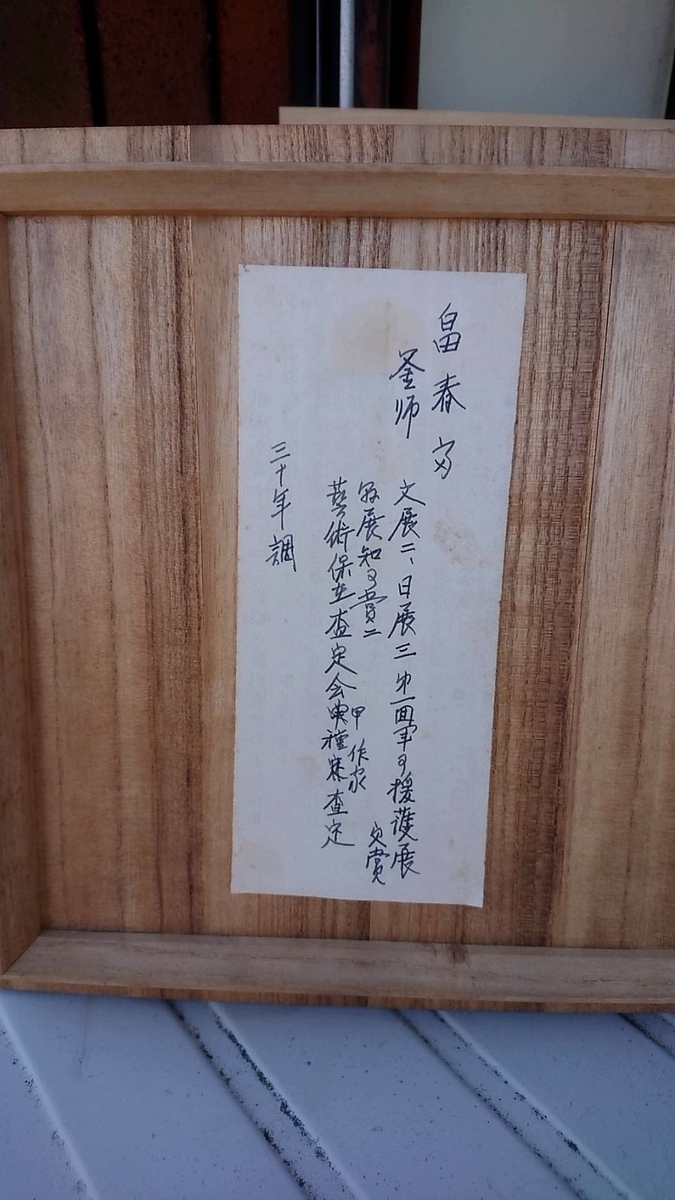 畠春
釜师
文展二、日展三 㐧一回軍事援護展
賞
展知事賞二
作家
藝術保存査定会 甲種 査定
三十年調